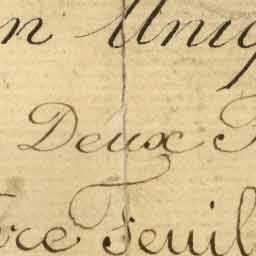 n Uniq
Deux F
tre Feuil